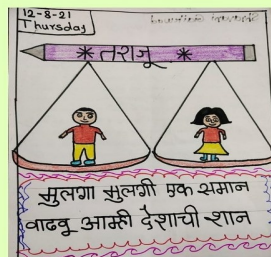 12-8-21
Thursday
तराजू
मुलगा मुलगी एक समान
वाढवू आम्ही देशाची शान